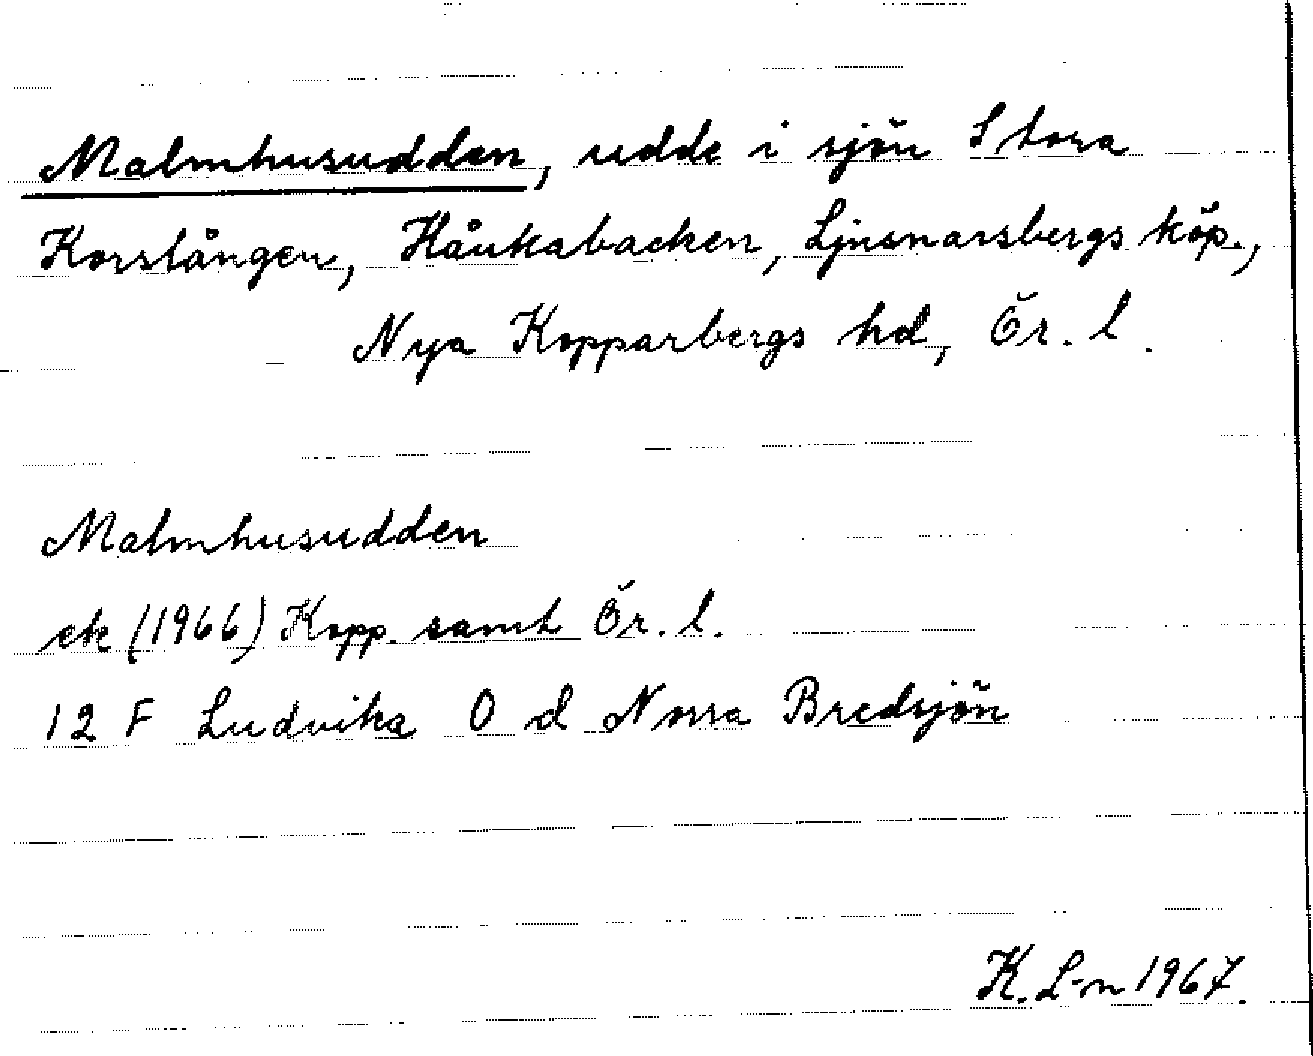 Malmhusudden, udde i sjön Stora
Korslången, Håukabacken, Ljusnarsbergs köp.,
Nya Kopparbergs hd, Ör. l.
Malmhusudden
ek (1966) Kopp. samt Ör. l.
12 F Ludvika 0 d Norra Bredsjön
K. L-n 1967.